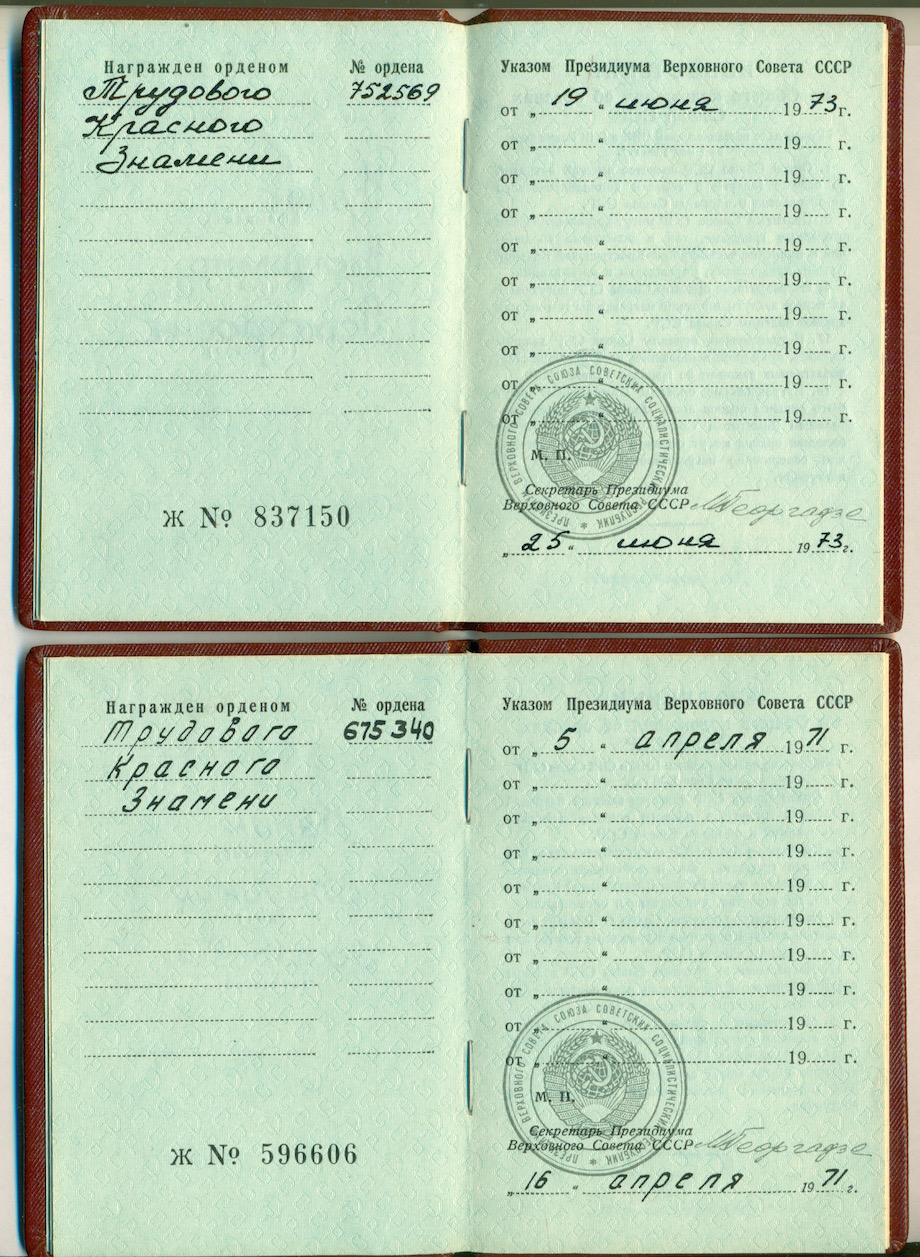 Награжден орденом № ордена
Трудового 752569
Красного
Знамени
Ж № 837150
Указом Президиума Верховного Совета СССР
от „ 19 “ июня 1973 г.
от „ “ 19 г.
от „ “ 19 г.
от „ “ 19 г.
от „ “ 19 г.
от „ “ 19 г.
от „ “ 19 г.
от „ “ 19 г.
от „ “ 19 г.
от „ “ 19 г.
ПРЕЗИДИУМ ВЕРХОВНОГО СОВЕТА СОЮЗА СОВЕТСКИХ СОЦИАЛИСТИЧЕСКИХ РЕСПУБЛИК
М. П.
Секретарь Президиума
Верховного Совета СССР МГеоргадзе
„ 25 “ июня 1973 г.
Награжден орденом № ордена
Трудового 675340
Красного
Знамени
Ж № 596606
Указом Президиума Верховного Совета СССР
от „ 5 “ апреля 1971 г.
от „ “ 19 г.
от „ “ 19 г.
от „ “ 19 г.
от „ “ 19 г.
от „ “ 19 г.
от „ “ 19 г.
от „ “ 19 г.
от „ “ 19 г.
от „ “ 19 г.
ПРЕЗИДИУМ ВЕРХОВНОГО СОВЕТА СОЮЗА СОВЕТСКИХ СОЦИАЛИСТИЧЕСКИХ РЕСПУБЛИК
М. П.
Секретарь Президиума
Верховного Совета СССР МГеоргадзе
„ 16 “ апреля 1971 г.